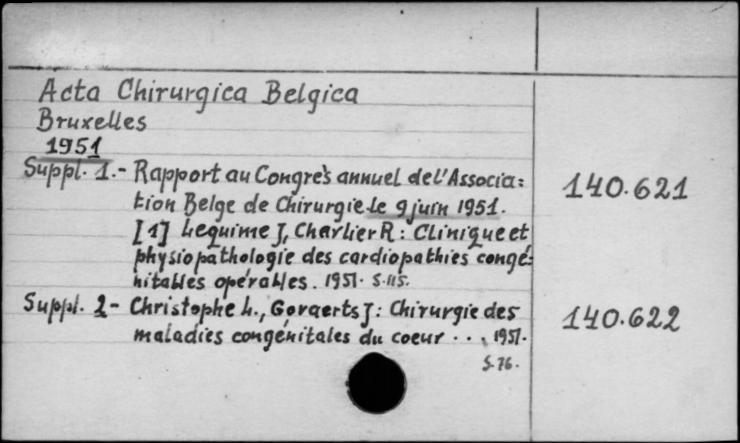 Acta Chirurgica Belgica
Bruxelles
1951
Suppl. 1.- Rapport au Congrès annuel de l'Associa= 140.621
tion Belge de Chirurgie le 9 juin 1951.
[1] Lequime J, Charlier R: Clinique et
physiopathologie des cardiopathies congé=
nitables opérables. 1951. S.115.
Suppl. 2- Christophe L., Govaerts J: Chirurgie des 140.622
maladies congénitales du coeur ... 1951.
S.76.